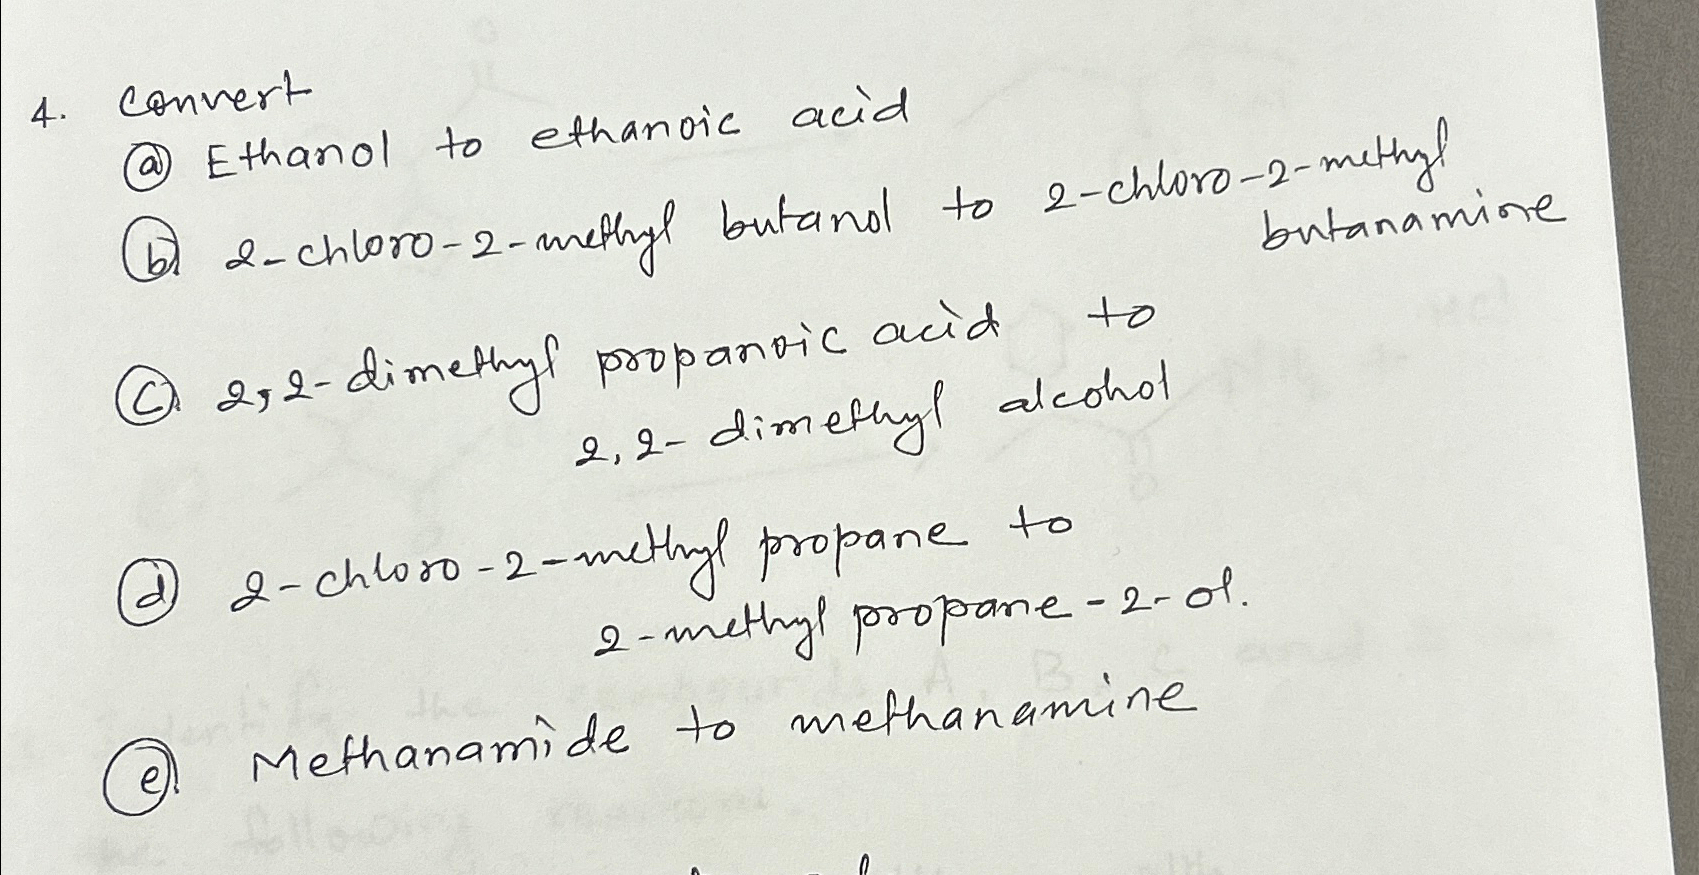 4. Convert
(a) Ethanol to ethanoic acid
(b) 2-chloro-2-methyl butanol to 2-chloro-2-methyl
butanamine
(c) 2,2-dimethyl propanoic acid to
2,2-dimethyl alcohol
(d) 2-chloro-2-methyl propane to
2-methyl propane-2-ol.
(e) Methanamide to methanamine